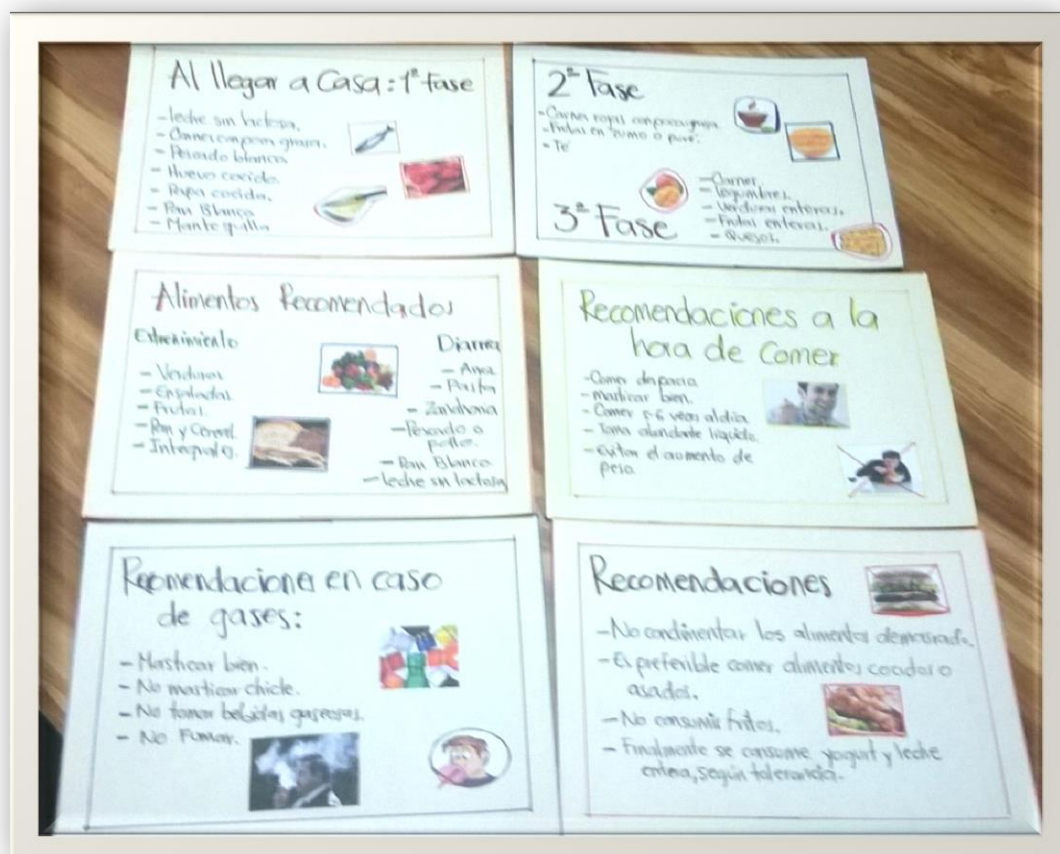 Al llegar a Casa: 1ª fase
- leche sin lactosa.
- Carnes con poca grasa.
- Pescado blanco
- Huevo cocido.
- Papa cocida.
- Pan Blanco
- Mantequilla
2ª Fase
- Carnes rojas con poca grasa
- Frutas en zumo o puré.
- Té
3ª Fase
- Carnes.
- Legumbres.
- Verduras enteras.
- Frutas enteras.
- Quesos.
Alimentos Recomendados
Estreñimiento
- Verduras
- Ensaladas.
- Frutas.
- Pan y Cereal
- Integrales.
Diarrea
- Arroz
- Pasta
- Zanahoria
- Pescado o
pollo.
- Pan Blanco
- leche sin lactosa
Recomendaciones a la
hora de Comer
- Comer despacio
- masticar bien.
- Comer 5-6 veces al día.
- Toma abundante liquido.
- evitar el aumento de
peso.
Recomendaciones en caso
de gases:
- Masticar bien.
- No masticar chicle.
- No tomar bebidas gaseosas.
- No Fumar.
Recomendaciones
- No condimentar los alimentos demasiado.
- Es preferible comer alimentos cocidos o
asados.
- No consumir fritos.
- Finalmente se consume yogurt y leche
entera, según tolerancia.